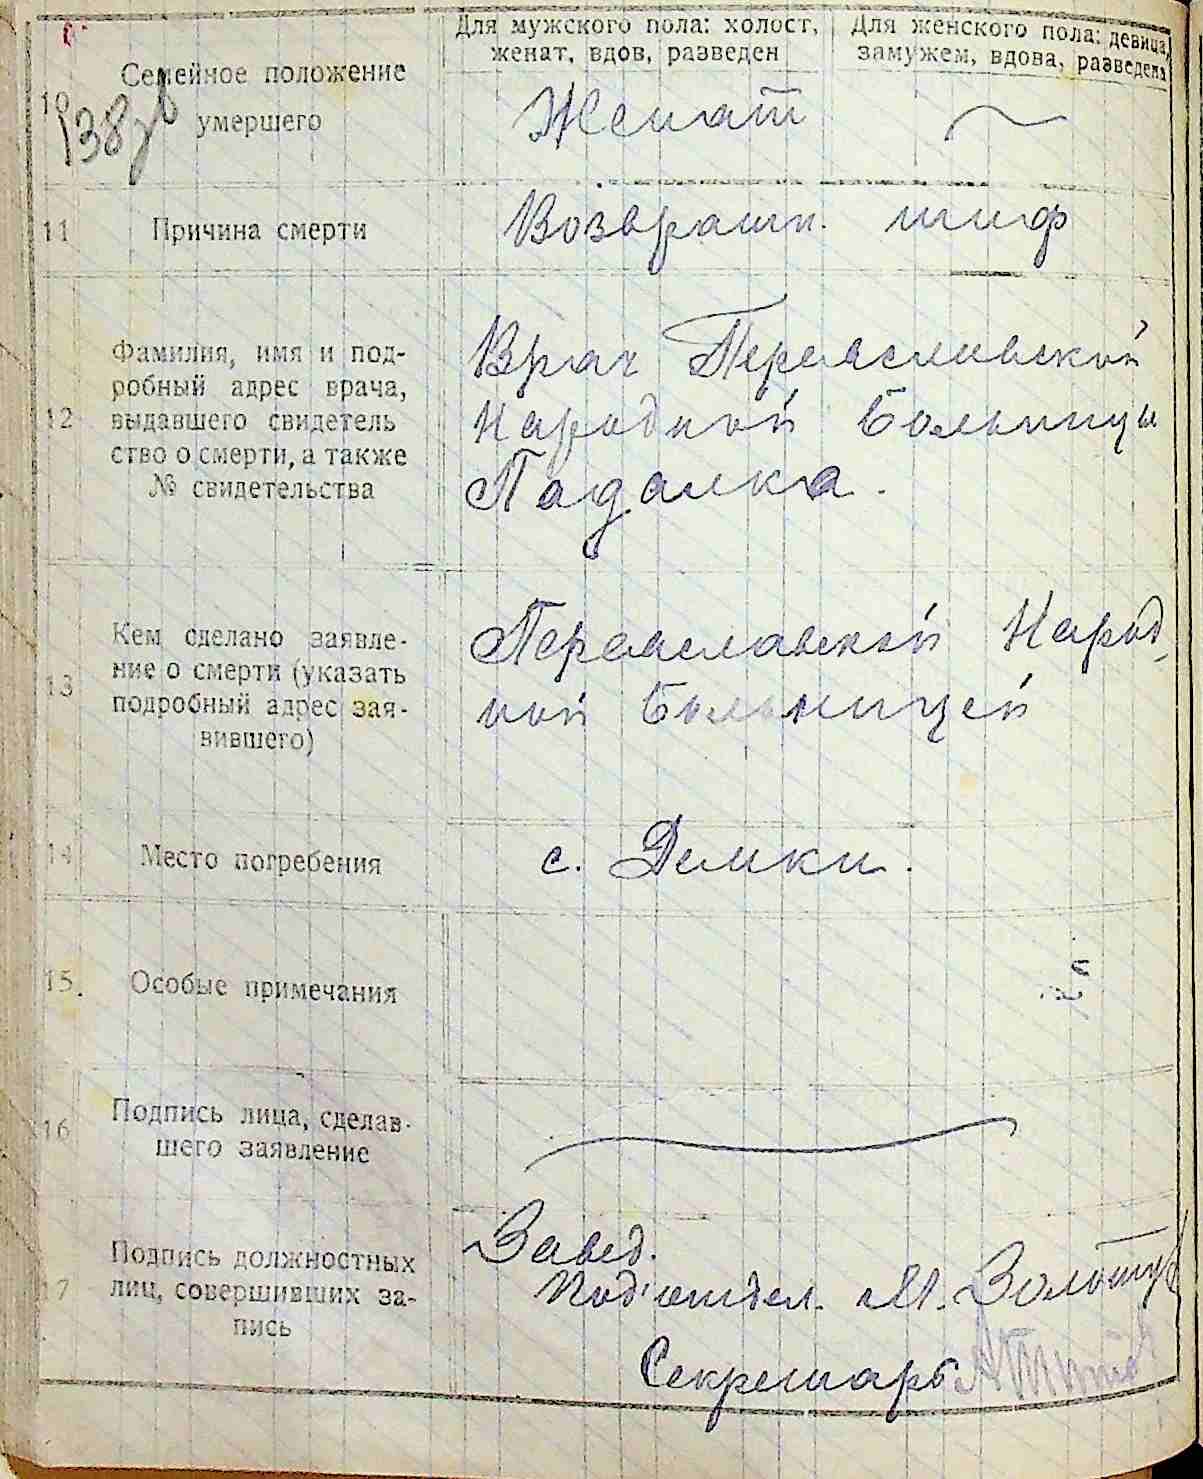 Для мужского пола: холост,
женат, вдов, разведен
Для женского пола: девица,
замужем, вдова, разведена
10
Семейное положение
умершего
138
Женат
11
Причина смерти
Возвратн. тиф
12
Фамилия, имя и под-
робный адрес врача,
выдавшего свидетель
ство о смерти, а также
№ свидетельства
Врач Переяславской
Народной Больницы
Падалка.
13
Кем сделано заявле-
ние о смерти (указать
подробный адрес зая-
вившего)
Переяславской Народ
ной Больницей
14
Место погребения
с. Демки.
15.
Особые примечания
16
Подпись лица, сделав-
шего заявление
17
Подпись должностных
лиц, совершивших за-
пись
Завед.
Под'отдел. М.
Секретарь